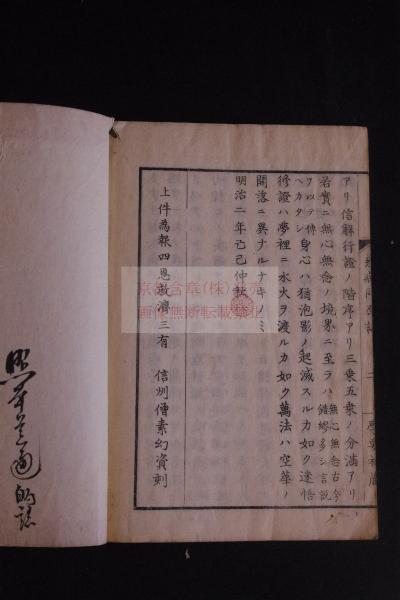 アリ信解行證ノ階序アリ三乗五乗ノ分満アリ
若實ニ無心無念ノ境界ニ至ラハ無心無念古今
錯繆多シ言説
ヲ以テ傳
ヘカタシ身心ハ猶泡影ノ起滅スルカ如ク迷悟
修證ハ夢裡ニ水火ヲ渡ルカ如ク萬法ハ空華ノ
開落ニ異ナルナキノミ
明治二年己巳仲秋
上件為報四恩救濟三有 信州僧素幻資刻
京都含章(株)
画像無断転載禁止